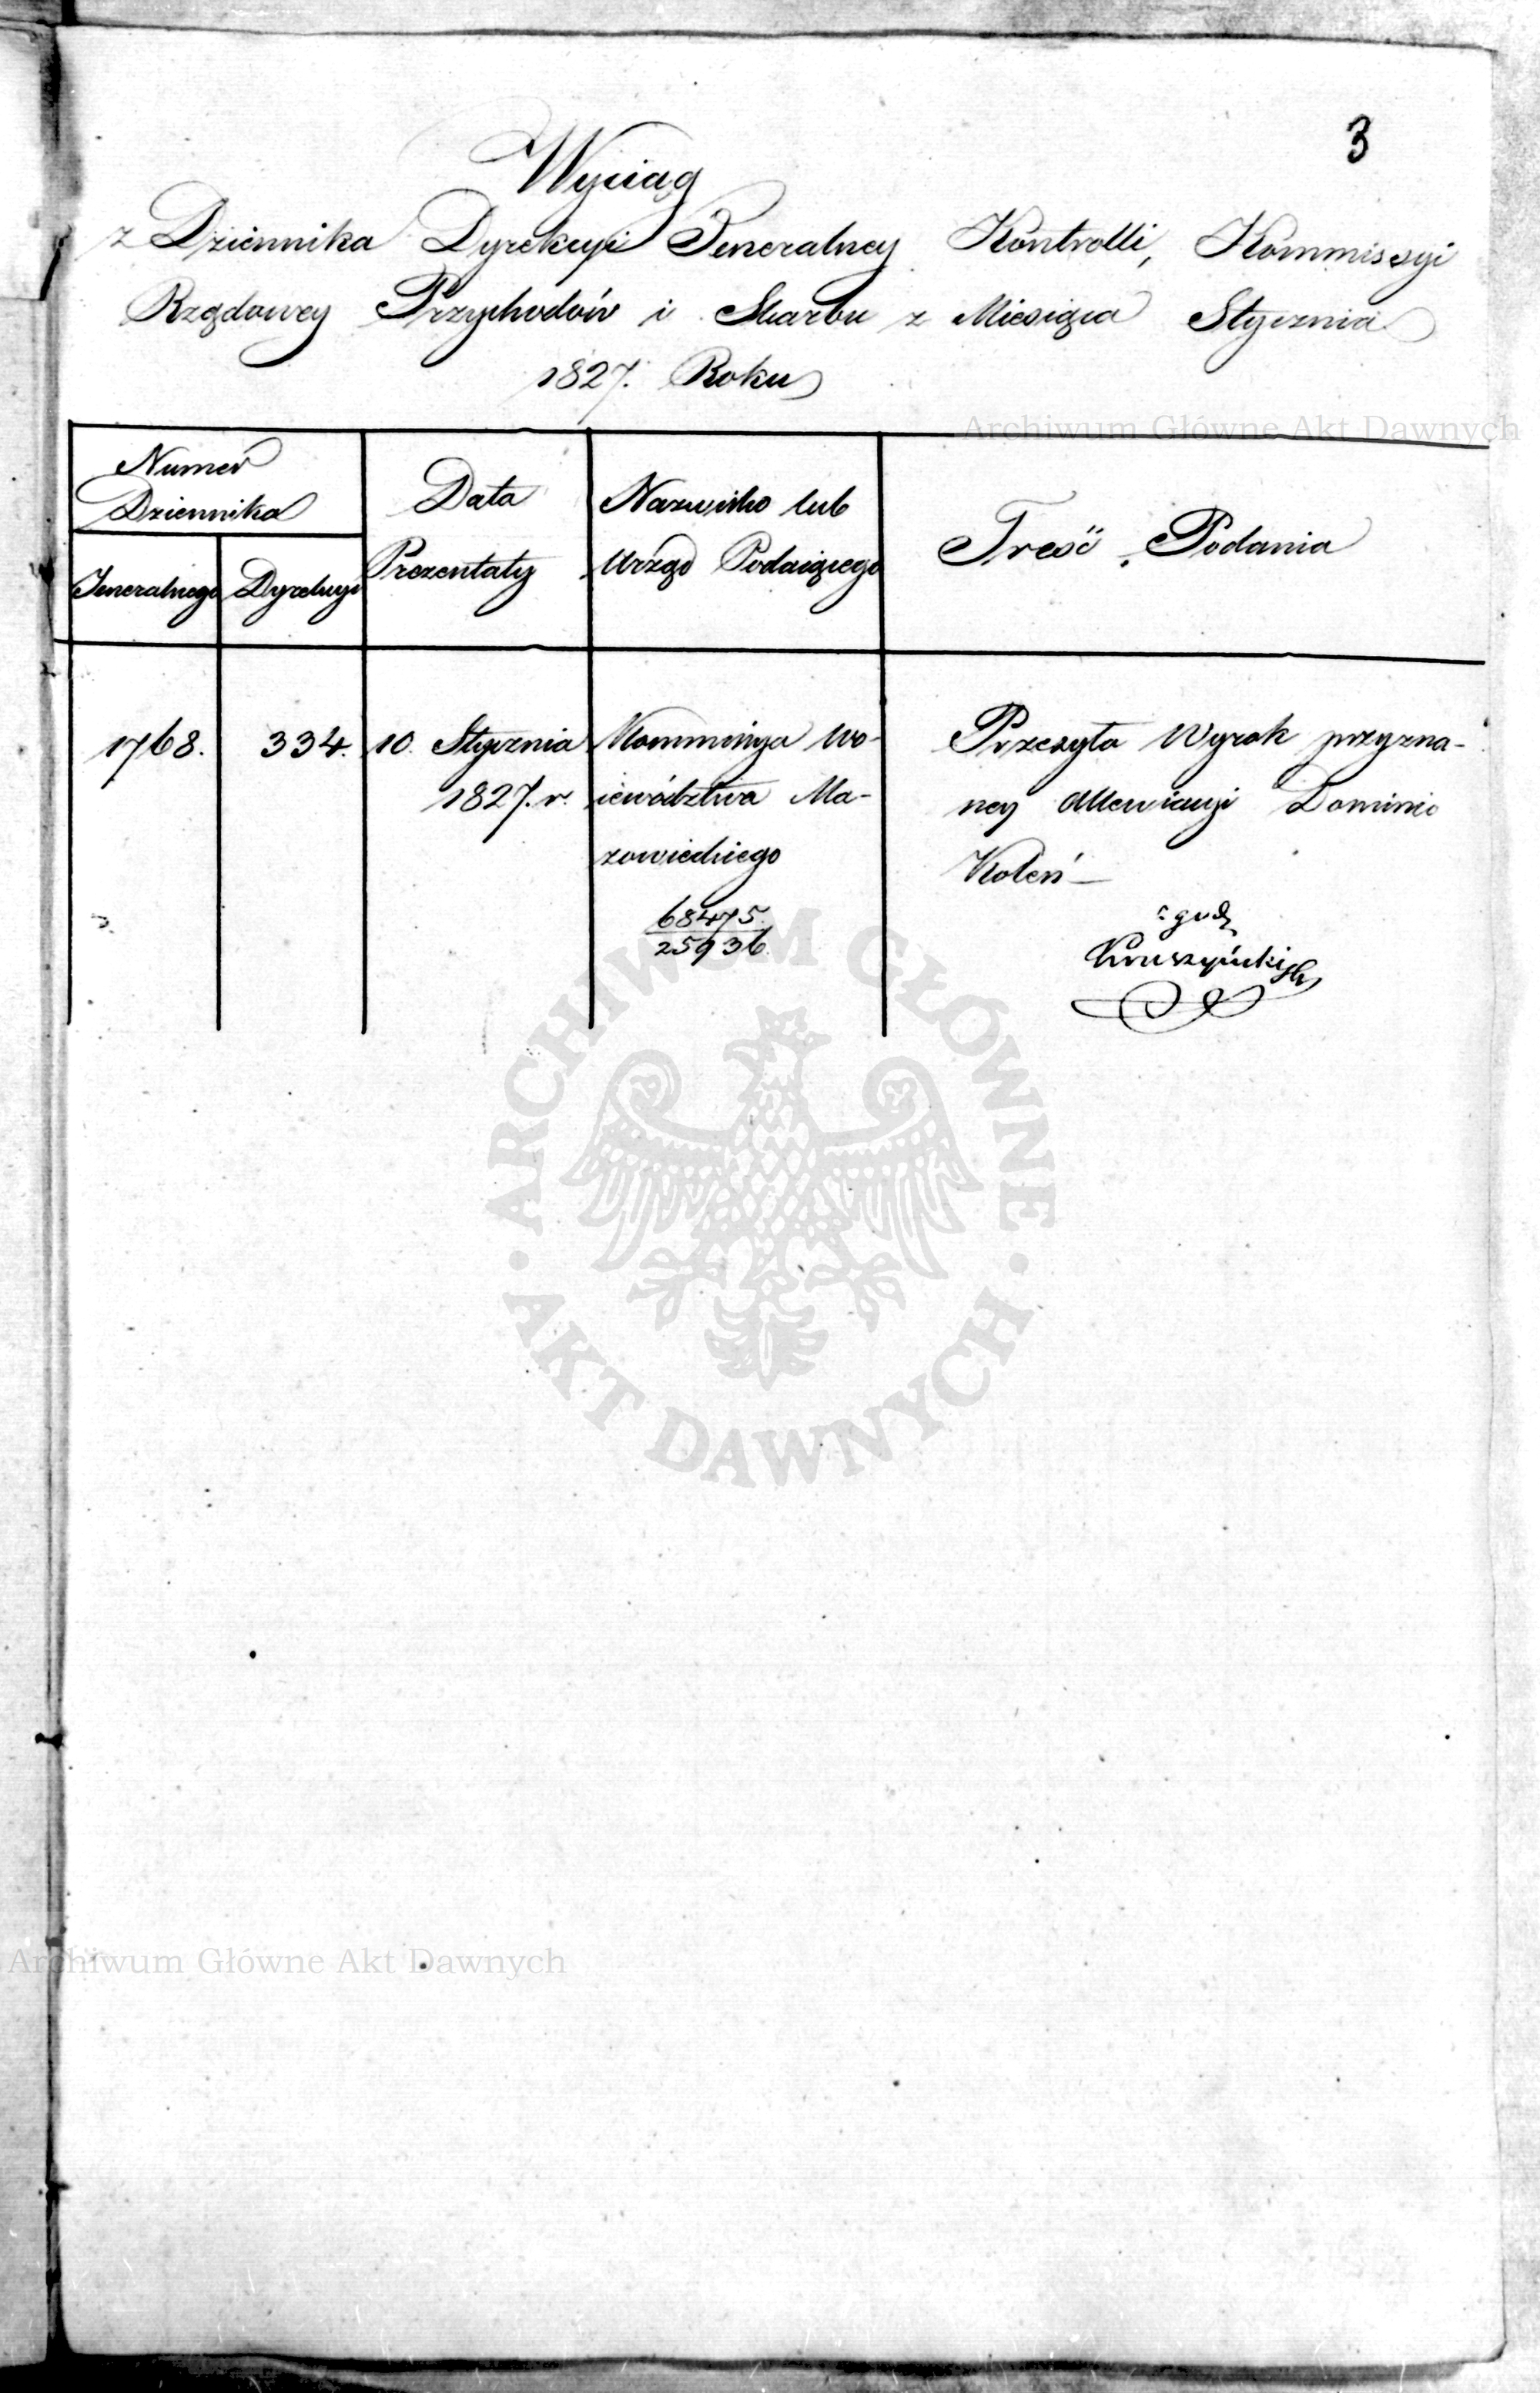 3
Wyciąg
z Dziennika Dyrekcyi Jeneralney Kontrolli, Kommissyi
Rządowey Przychodów i Skarbu z Miesiąca Stycznia
1827. Roku
Archiwum Główne Akt Dawnych
Numer
Dziennika
Jeneralnego
Dyrekcyi
Data
Prezentaty
Nazwisko lub
Urząd Podaiącego
Treść Podania
1768.
334.
10. Stycznia
1827. r.
Kommissya Wo-
iewództwa Ma-
zowieckiego
68475.
25936
Przesyła Wyrok przyzna-
ney Allewiacyi Dominio
Koleń
zgod
Kruszyński
ARCHIWUM GŁÓWNE
AKT DAWNYCH
Archiwum Główne Akt Dawnych